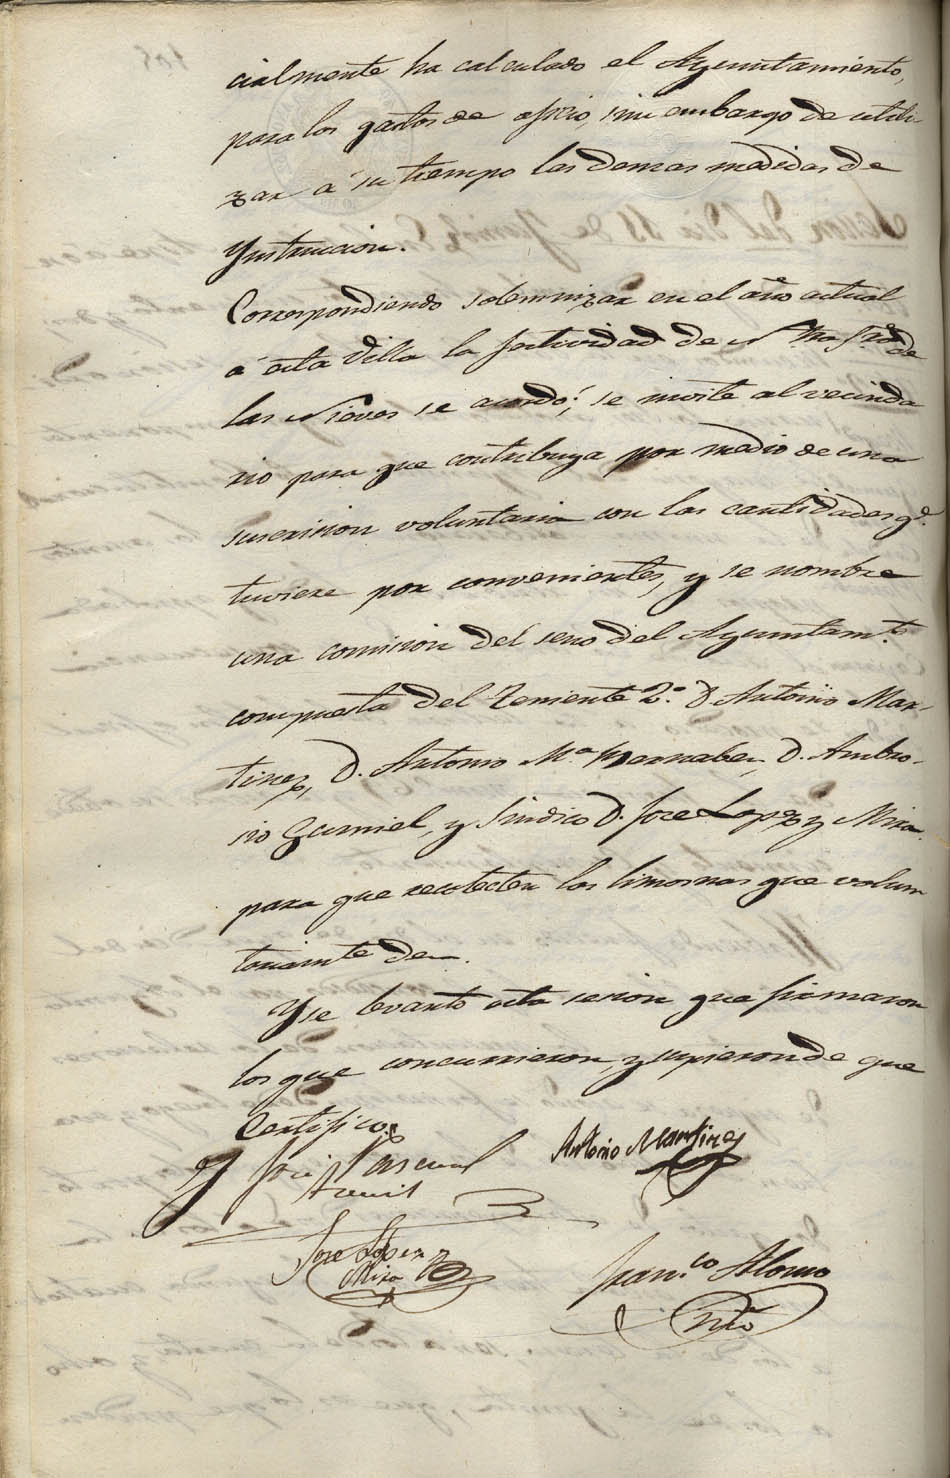 cialmente ha calculado el Ayuntamiento,
para los gastos de oficio, sin embargo de utili-
zar á su tiempo las demas medidas de
Ynstruccion.
Correspondiendo solemnizar en el año actual
á esta Villa la festividad de Ntra Sra de
las Nieves se acordó; se invite al vecinda
rio para que contribuya por medio de una
suscricion voluntaria con las cantidades q.e
tuviere por convenientes, y se nombre
una comision del seno del Ayuntam.to
compuesta del Teniente 2.º D Antonio Mar-
tinez, D. Antonio M.a Bernabeu, D. Ambro-
sio Gumiel, y Sindico D. Jose Lopez y Mira
para que recolecten las limosnas que volun
tariamte den.
Y se levantó esta sesion que firmaron
los que concurrieron, y supieron de que
Certifico.
José Pascual
Antonio Martinez
Jose Lopez y
Mira
Fran.co Alonso
Srio